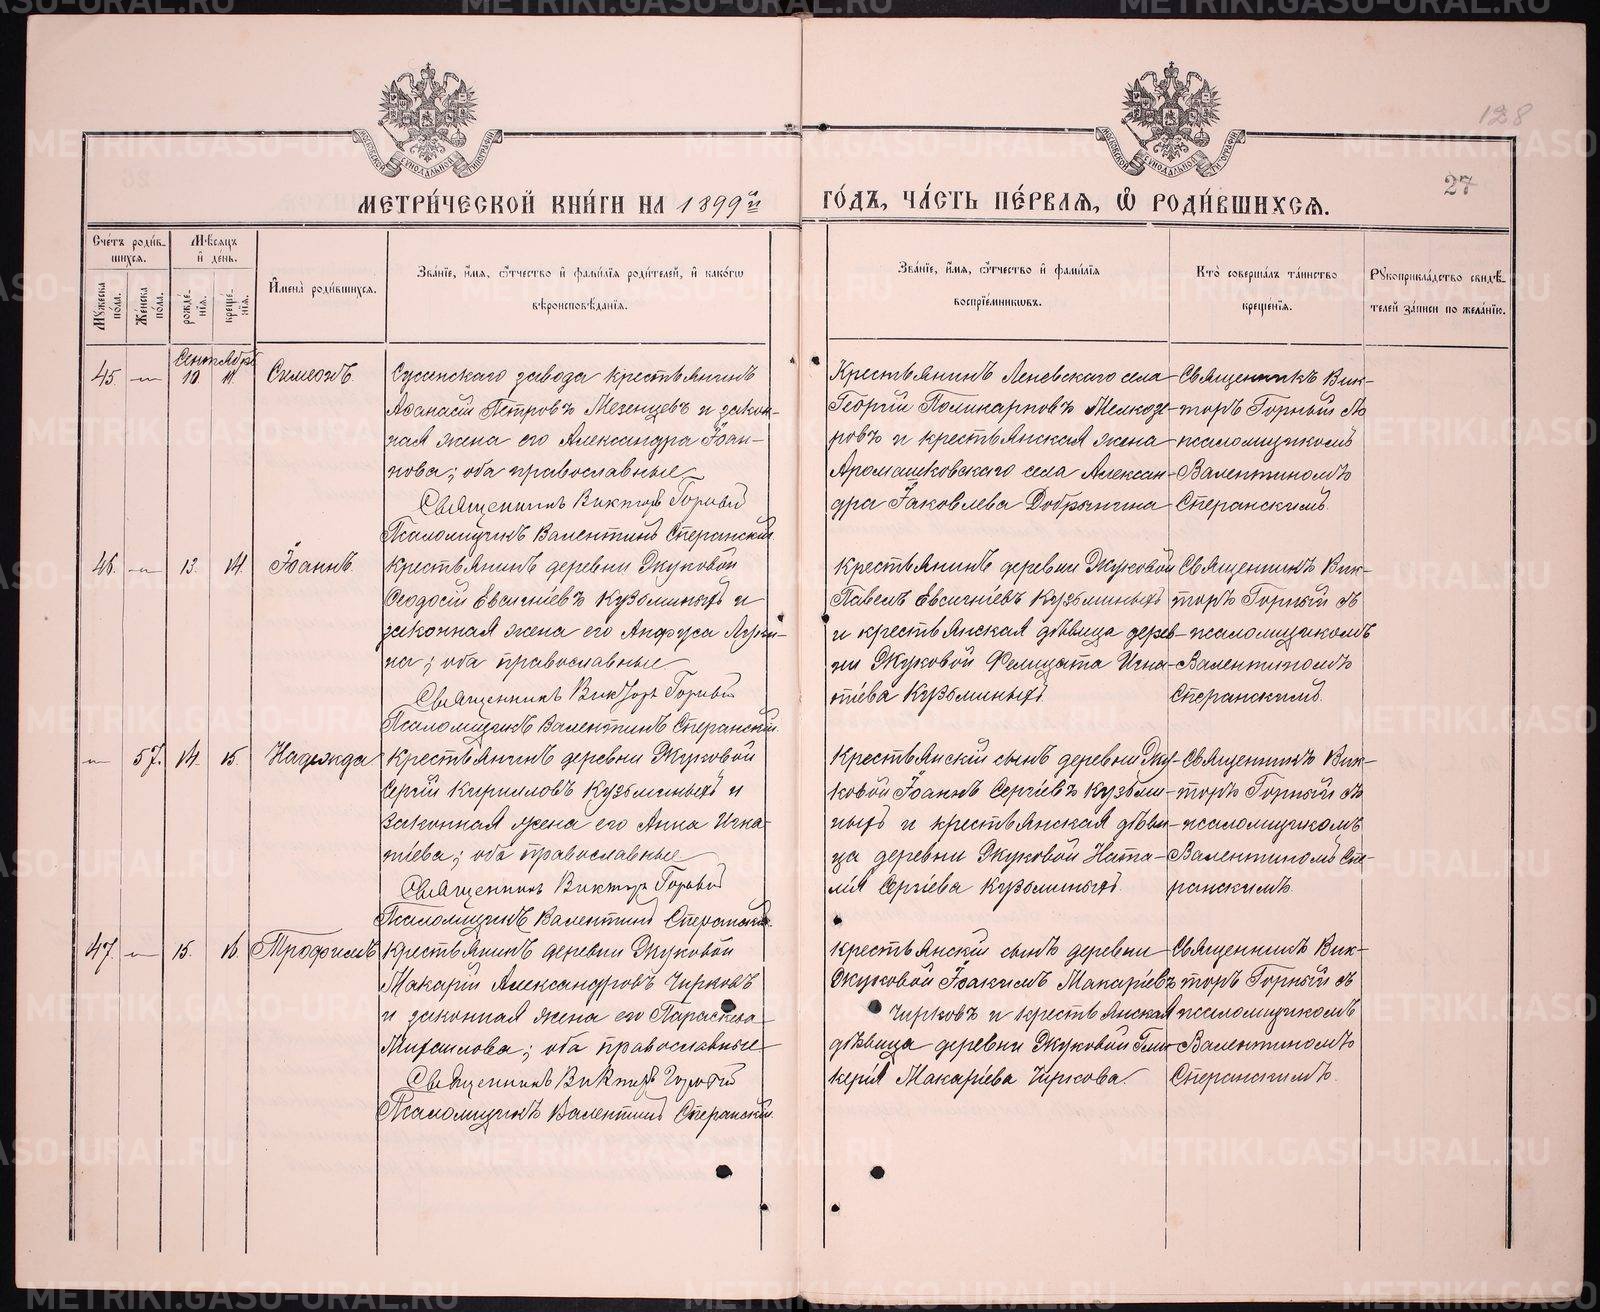 128
27
МЕТРИ́ЧЕСКОЙ КНИ́ГИ НА 1899й
ГО́ДЪ, ЧА́СТЬ ПЕ́РВАѦ, Ѡ҆ РОДИ́ВШИХСѦ.
Сче́тъ роди́в-
шихся.
Мѣ́сяцъ
и҆ день.
Мꙋжеска по́ла.
Же́нска по́ла.
рожде́-
нїѧ.
креще́-
нїѧ.
И҆мена̀ роди́вшихся.
Зва́нїе, и҆́мя, ѻ҆́тчество и҆ фами́лїя роди́телей, и҆ како́гѡ
вѣроисповѣ́данїя.
Зва́нїе, и҆́мя, ѻ҆́тчество и҆ фами́лїя
воспрїе́мникѡвъ.
Кто̀ соверша́лъ та́инство
креще́нїя.
Рꙋкоприкла́дство свидѣ́-
телей за́писи по жела́нїю.
Сентябрь
45 — 10 11 Симеонъ
Сусанскаго завода крестьянинъ
Аѳанасій Петровъ Мезенцевъ и закон-
ная жена его Александра Іоан-
нова; оба православные
Священникъ Викторъ Горный
Псаломщикъ Валентинъ Сперанскій
Крестьянинъ Леневскаго села
Георгій Поликарповъ Мелкозе-
ровъ и крестьянская жена
Арамашковскаго села Алексан-
дра Іаковлева Добрынина
Священникъ Вик-
торъ Горный съ
псаломщикомъ
Валентиномъ
Сперанскимъ.
46. — 13. 14. Іоаннъ
Крестьянинъ деревни Жуковой
Ѳеодосій Евсигніевъ Кузьминыхъ и
законная жена его Анфуса
на; оба православные
Священникъ Викторъ Горный
Псаломщикъ Валентинъ Сперанскій.
Крестьянинъ деревни Жуковой
Павелъ Евсигніевъ Кузьминыхъ
и крестьянская дѣвица дерев-
ни Жуковой Фелицата Игна-
тіева Кузьминыхъ
Священникъ Вик-
торъ Горный съ
псаломщикомъ
Валентиномъ
Сперанскимъ.
— 57. 14. 15. Надежда
Крестьянинъ деревни Жуковой
Сергій Кирилловъ Кузьминыхъ и
законная жена его Анна Игна-
тіева; оба православные
Священникъ Викторъ Горный
Псаломщикъ Валентинъ Сперанскій.
Крестьянскій сынъ деревни Жу-
ковой Іоаннъ Сергіевъ Кузьми-
ныхъ и крестьянская дѣви-
ца деревни Жуковой Ната-
лія Сергіева Кузьминыхъ.
Священникъ Вик-
торъ Горный съ
псаломщикомъ
Валентиномъ Спе-
ранскимъ.
47. — 15. 16. Трофимъ
Крестьянинъ деревни Жуковой
Макарій Александровъ Чирковъ
и законная жена его Параскева
Михаилова; оба православные
Священникъ Викторъ Горный
Псаломщикъ Валентинъ Сперанскій.
Крестьянскій сынъ деревни
Жуковой Іоакимъ Макаріевъ
Чирковъ и крестьянская
дѣвица деревни Жуковой Гли-
керія Макаріева Чиркова.
Священникъ Вик-
торъ Горный съ
псаломщикомъ
Валентиномъ
Сперанскимъ.
METRIKI.GASO-URAL.RU